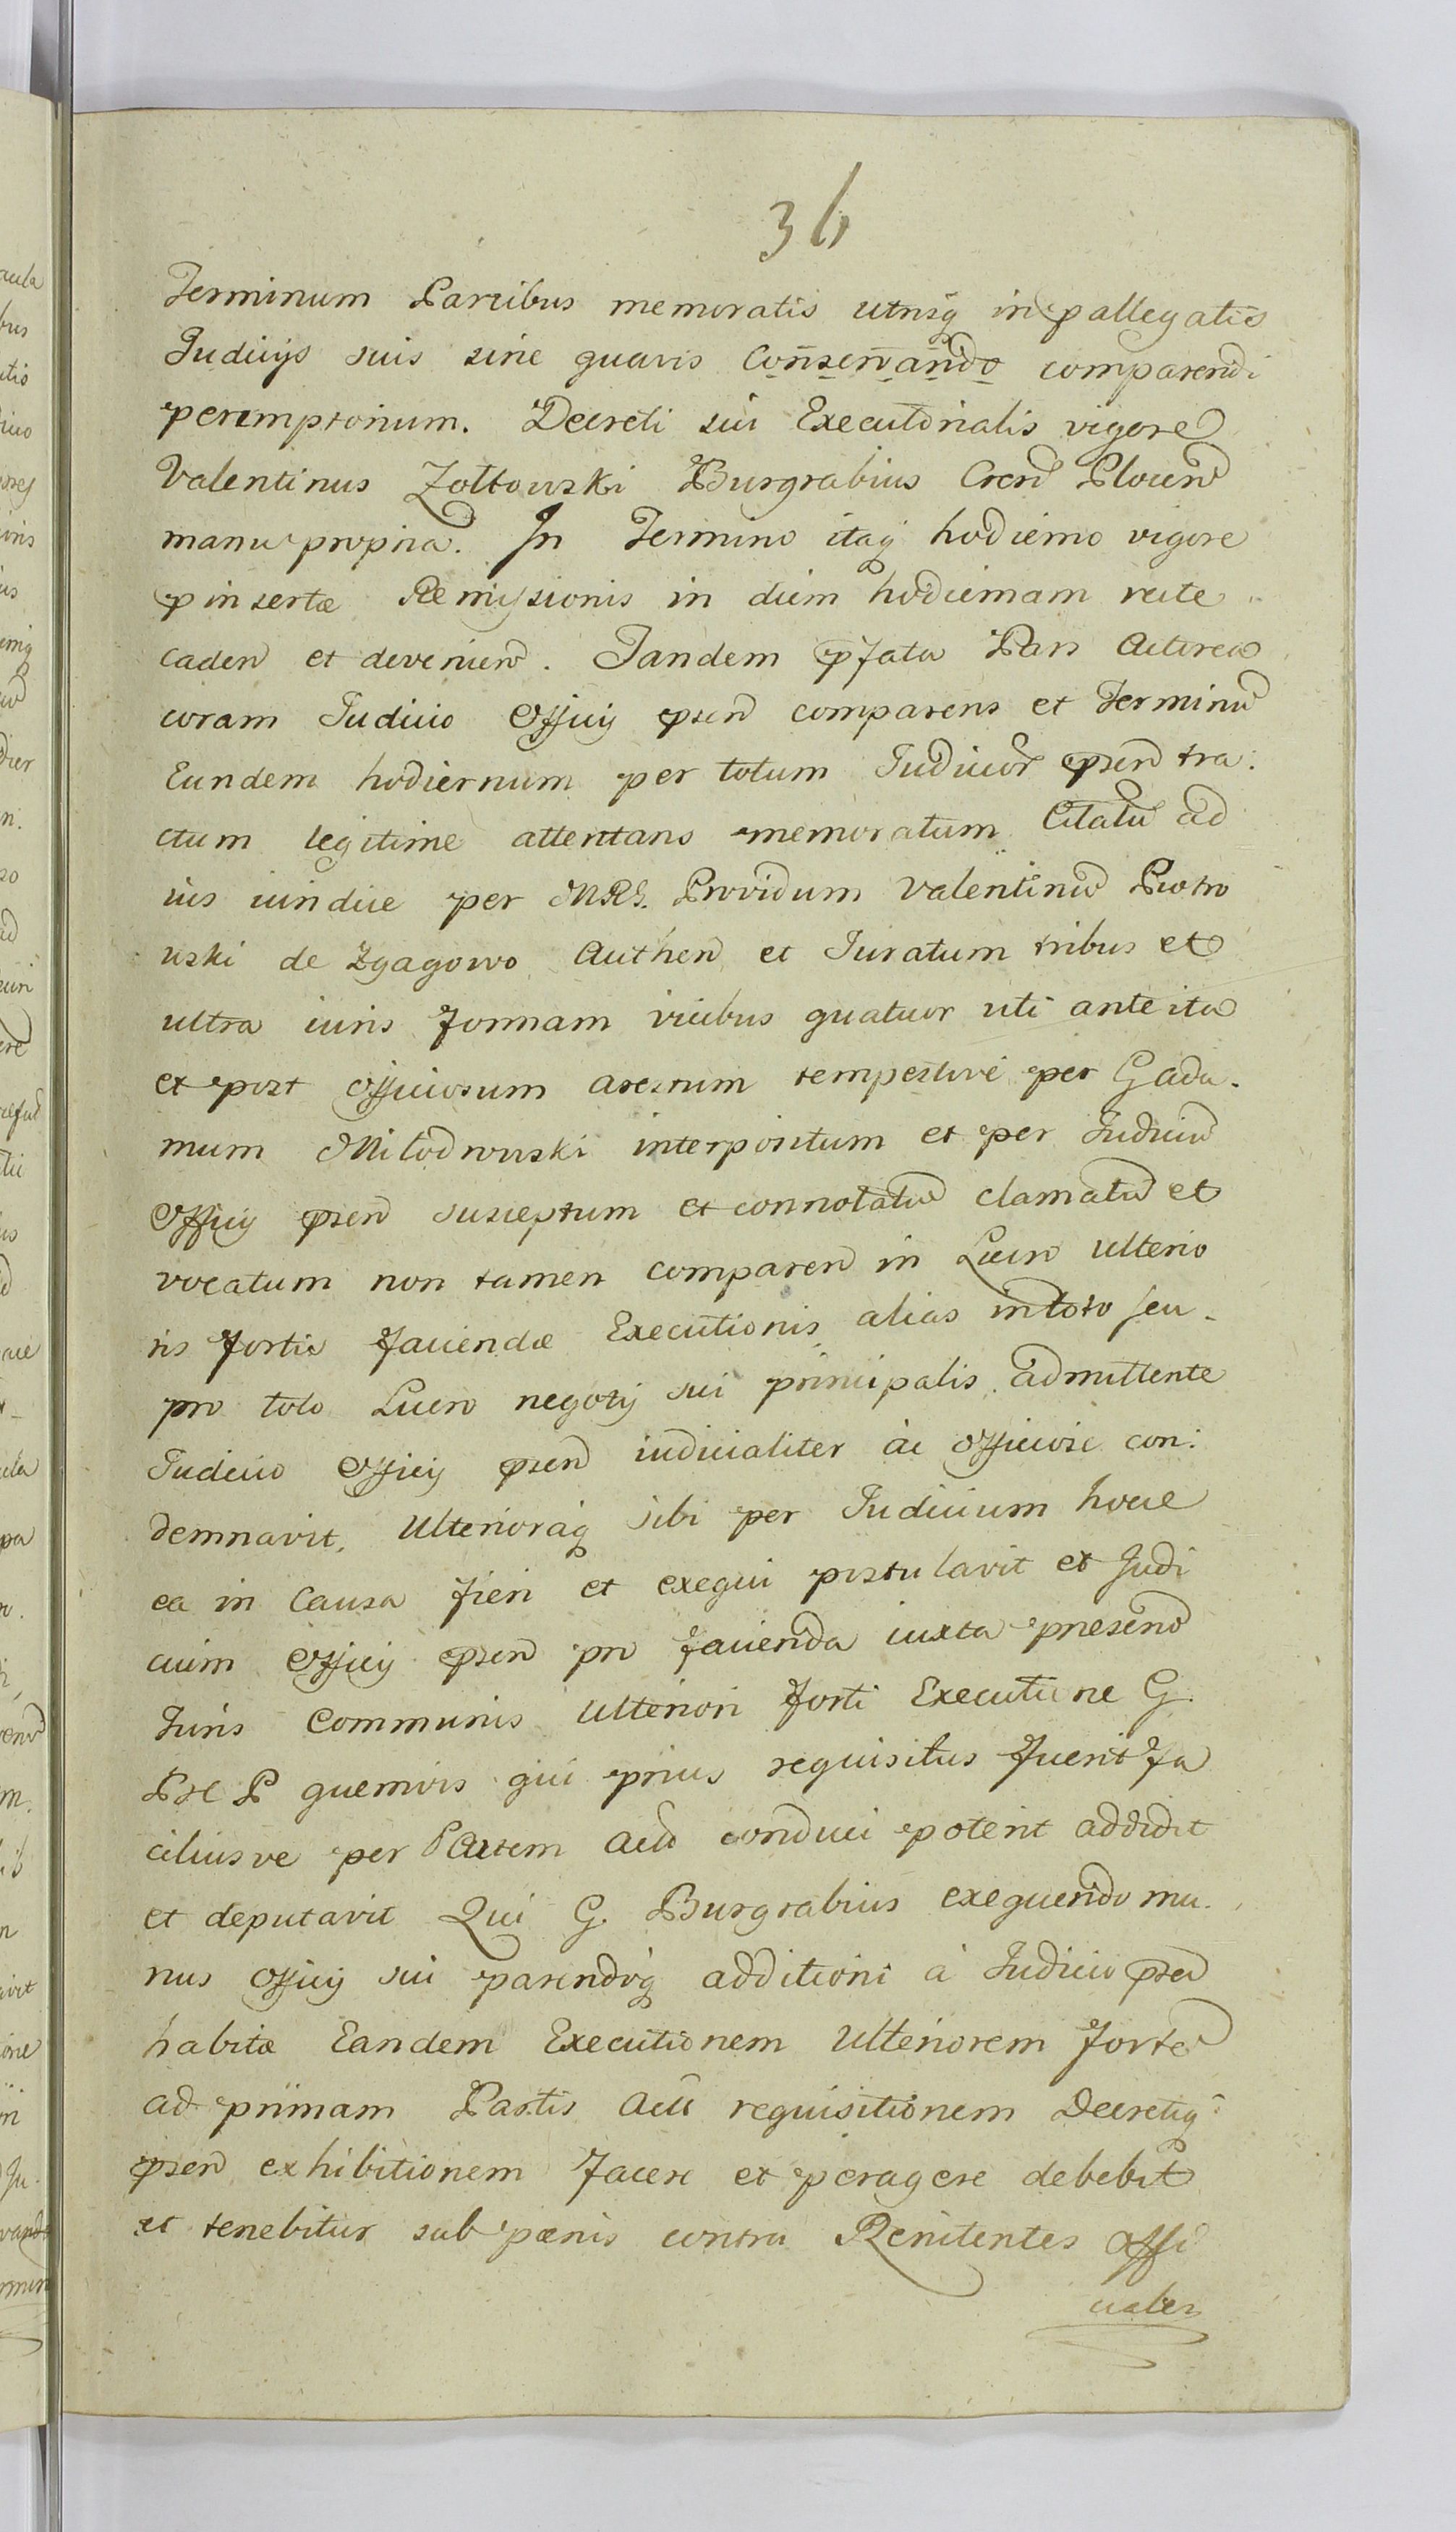 36
Terminum Partibus memoratis utrisq in pallegatis
Judicijs suis sine quavis Conservando comparendi
peremptorium. Decreti sui Executorialis vigore
Valentinus Zołtowski Burgrabius Cren Plocen
manu propria. In Termino itaq hodierno vigore
pinsertæ Remissionis in diem hodiernam recte
caden et devenien. Tandem pfata Pars Actorea
coram Judicio Officij psen comparens et Terminu
Eundem hodiernum per totum Judicior psen tra:
ctum legitime attentans memoratum Citatu ad
ius iuridice per MRS. Providum Valentinu Piotro
wski de Zgagowo Authen et Juratum tribus et
ultra iuris formam vicibus quatuor uti ante ita
et post officiosum arestum tempestive per G Ada-
mum Miłodrowski interpositum et per Judiciu
Officij psen susceptum et connotatu clamatu et
vocatum non tamen comparen in Lucro ulterio
ris fortis faciendæ Executionis alias in toto seu
pro toto Lucro negotij sui principalis admittente
Judicio Officij psen iudicialiter ac officiose con:
demnavit, Ulterioraq sibi per Judicium hocce
ea in Causa fieri et exequi postulavit et Judi
cium Officij psen pro facienda iuxta præsens
Juris Communis Ulteriori forti Executione G.
quemvis qui prius requisitus fuerit fa
ciliusve per Partem Act conduci poterit addidit
et deputavit Qui G. Burgrabius exequendo mu-
nus officij sui parendoq additioni à Judicio psen
habitæ Eandem Executionem Ulteriorem forte
ad primam Partis Act requisitionem Decretiq
psen exhibitionem facere et peragere debebit
et tenebitur sub pænis contra Renitentes offi
cialer